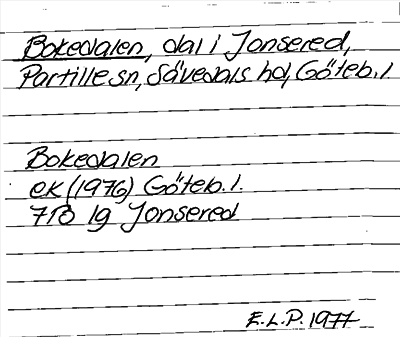 Bokedalen, dal i Jonsered,
Partille sn, Sävedals hd, Göteb. l
Bokedalen
ek (1976) Göteb. l.
7 B 1g Jonsered
E.L.P. 1977